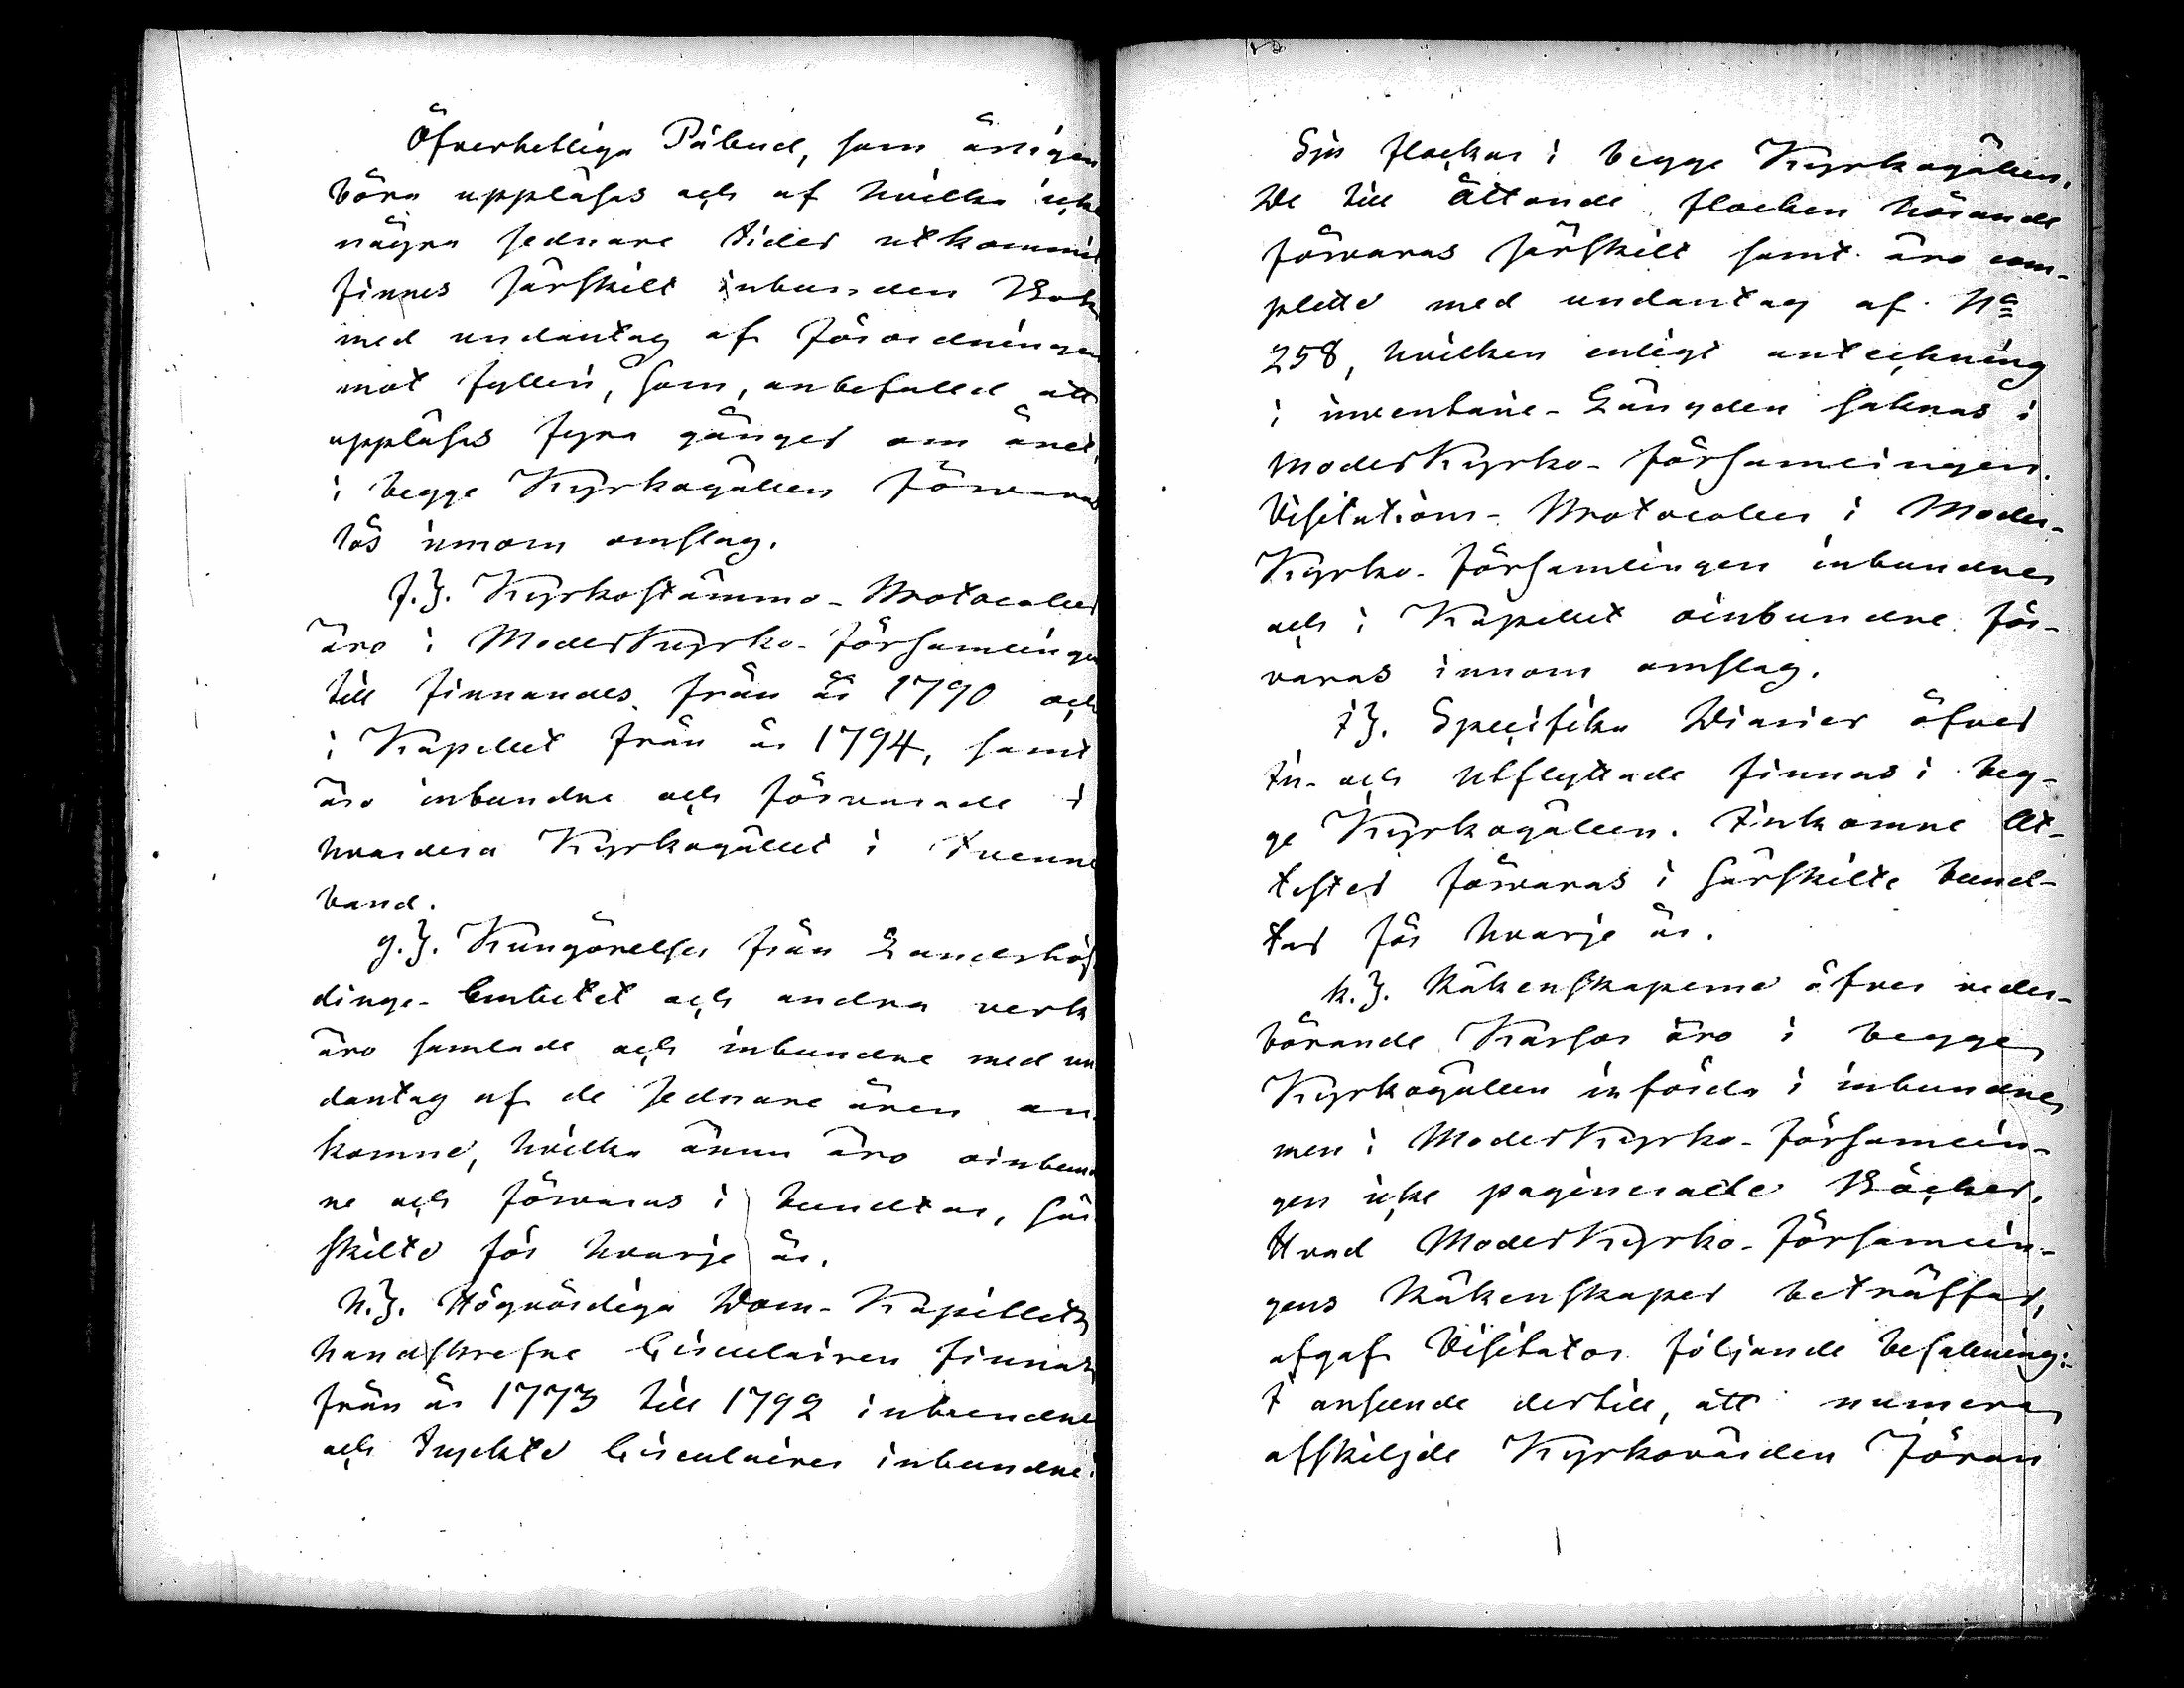 Öfverhetliga Påbud, som årligen
böra uppläsas och af hvilka icke
några sednare tider utkommit
finnes särskilt inbunden Bok
med undantag af Förordningen
mot fylleri, som, anbefalld att
uppläsas fyra gånger om året,
i begge Kyrkogällen förvaras
lös innom omslag.
f.). Kyrkostämmo-Protocoller
äro i Moderkyrko-församlingen
till finnandes från år 1790 och
i Kapellet från år 1794, samt
äro inbundne och förvarade i
hvardera Kyrkogället i tvenne
band.
g.). Kungörelser från Landshöf-
dinge-Embetet och andra verk
äro samlade och inbundne med un
dantag af de sednare åren an
komne, hvilka ännu äro oinbund
ne och förvaras i bundtar, sär
skilte för hvarje år.
h.). Högvördiga Dom-Kapitlets
handskrefne Circulairen finnas
från år 1773 till 1792 inbundne
och tryckte Circulairer inbundne i
Sju flockar i begge Kyrkogällen.
De till åttonde flocken hörande
förvaras särskilt samt äro com-
plette med undantag af No
258, hvilken enligt anteckning
i inventarie-Längden saknas i
Moderkyrko-församlingen.
Visitations-Protocoller i Moder-
Kyrko-församlingen inbundne
och i Kapellet oinbundne för-
varas innom omslag.
i). Specifika Diarier öfver
In- och Utflyttade finnas i beg-
ge Kyrkogällen. Inkomne At-
tester förvaras i särskilte bund-
tar för hvarje år.
k.). Räkenskaperne öfver veder-
börande Kassor äro i begge
Kyrkogällen införda i inbundne
men i Moderkyrko-församlin-
gen icke paginerade Böcker.
Hvad Moderkyrko-församlin-
gens Räkenskaper beträffar,
afgaf Visitator följande befallning:
I anseende dertill, att numera
afskiljde Kyrkovärden Jöran